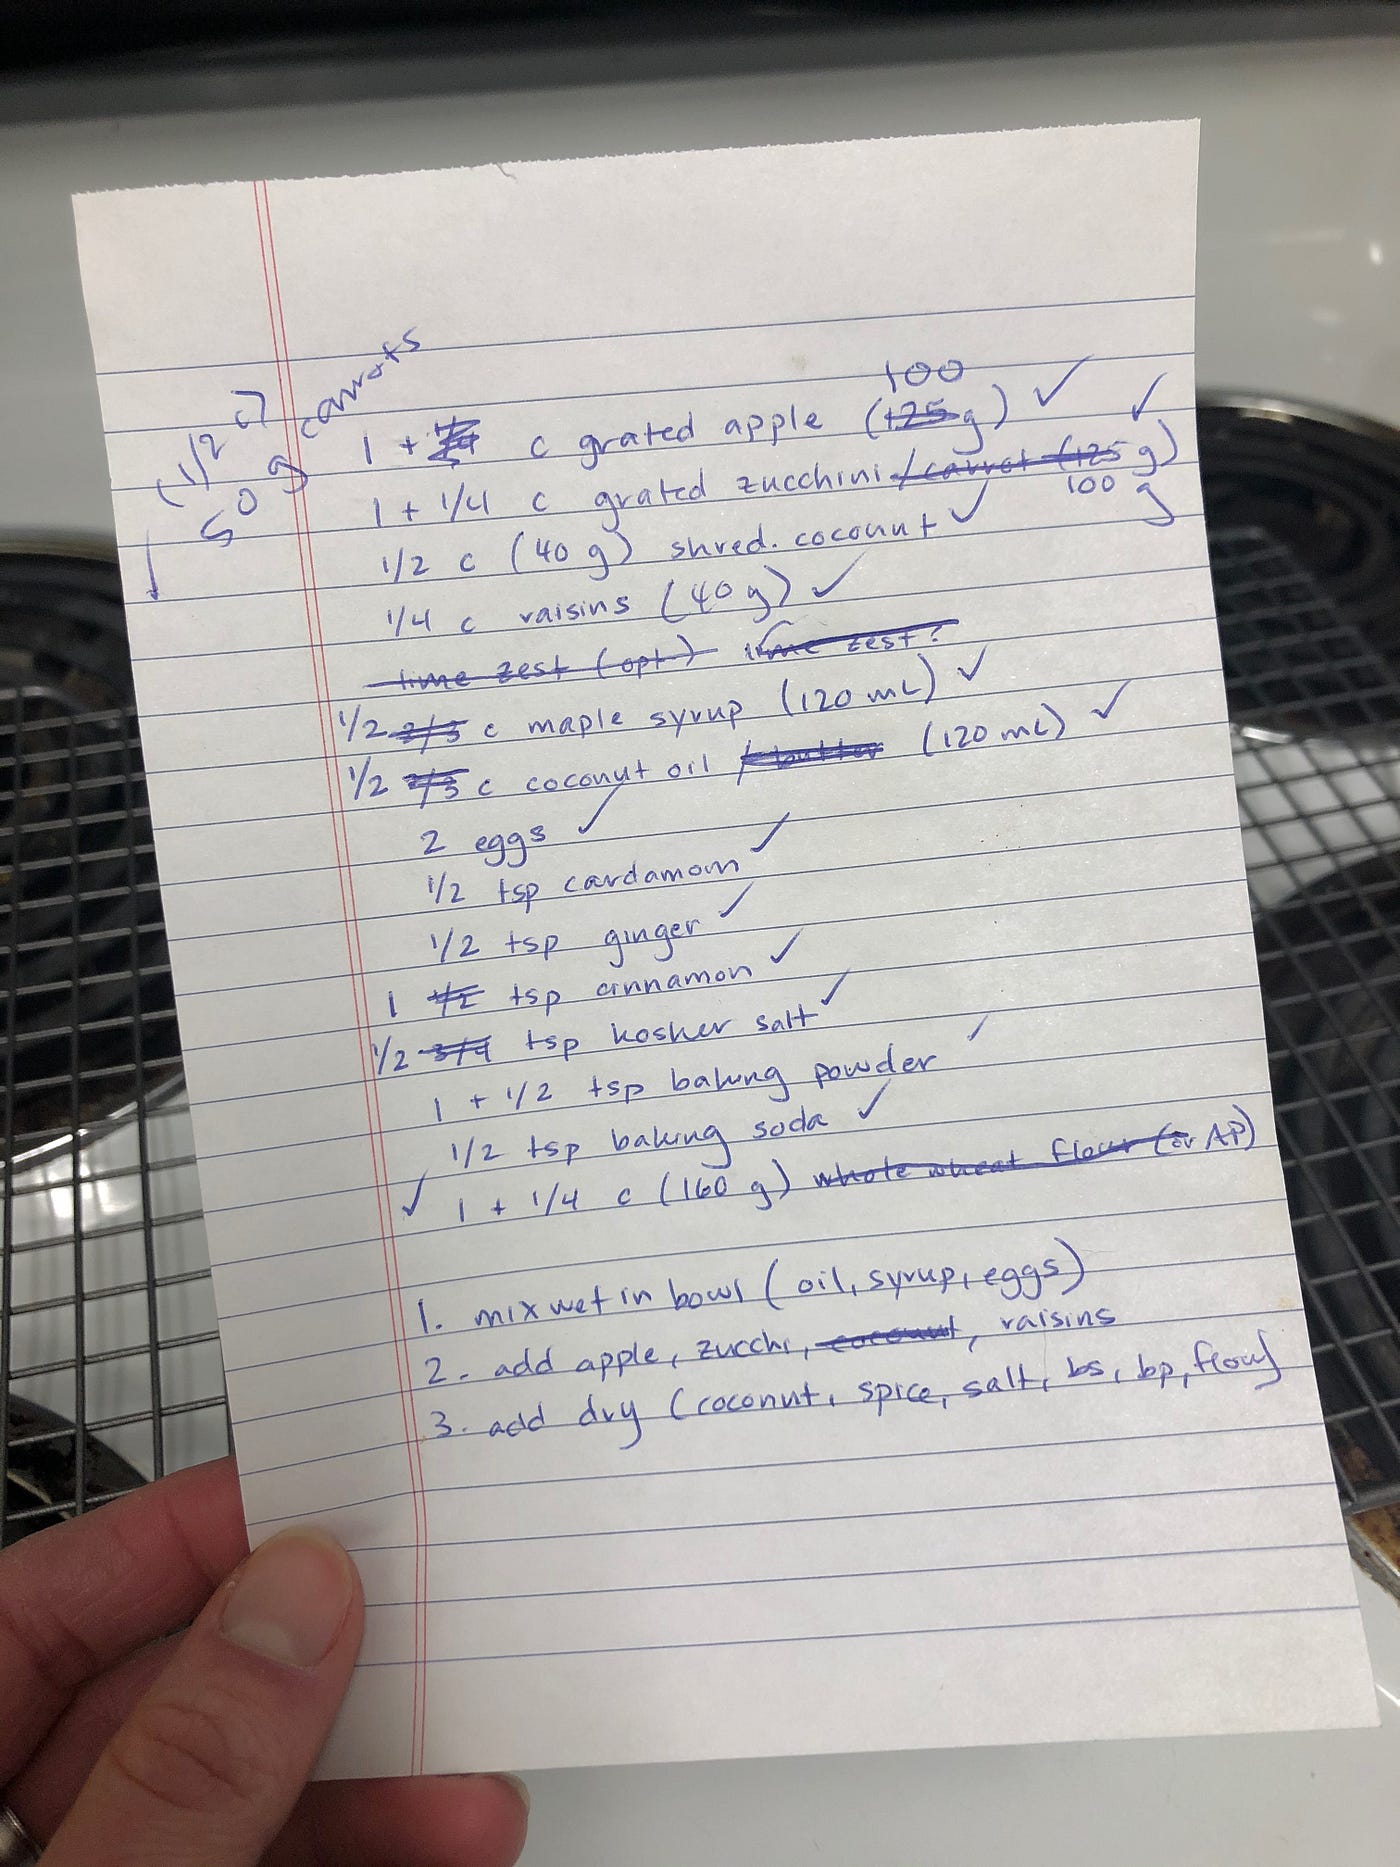 (1/2 c)
50 g carrots
100
1 + c grated apple (125 g) ✓
1 + 1/4 c grated zucchini / carrot (125 g) ✓
100 g
1/2 c (40 g) shred. coconut ✓
1/4 c raisins (40 g) ✓
lime zest (opt) lime zest?
1/2 2/3 c maple syrup (120 mL) ✓
1/2 2/3 c coconut oil / butter (120 mL) ✓
2 eggs ✓
1/2 tsp cardamom ✓
1/2 tsp ginger ✓
1 1/2 tsp cinnamon ✓
1/2 3/4 tsp kosher salt ✓
1 + 1/2 tsp baking powder ✓
1/2 tsp baking soda ✓
✓ 1 + 1/4 c (160 g) whole wheat flour (or AP)
1. mix wet in bowl (oil, syrup, eggs)
2. add apple, zucchi, coconut, raisins
3. add dry (coconut, spice, salt, bs, bp, flour)